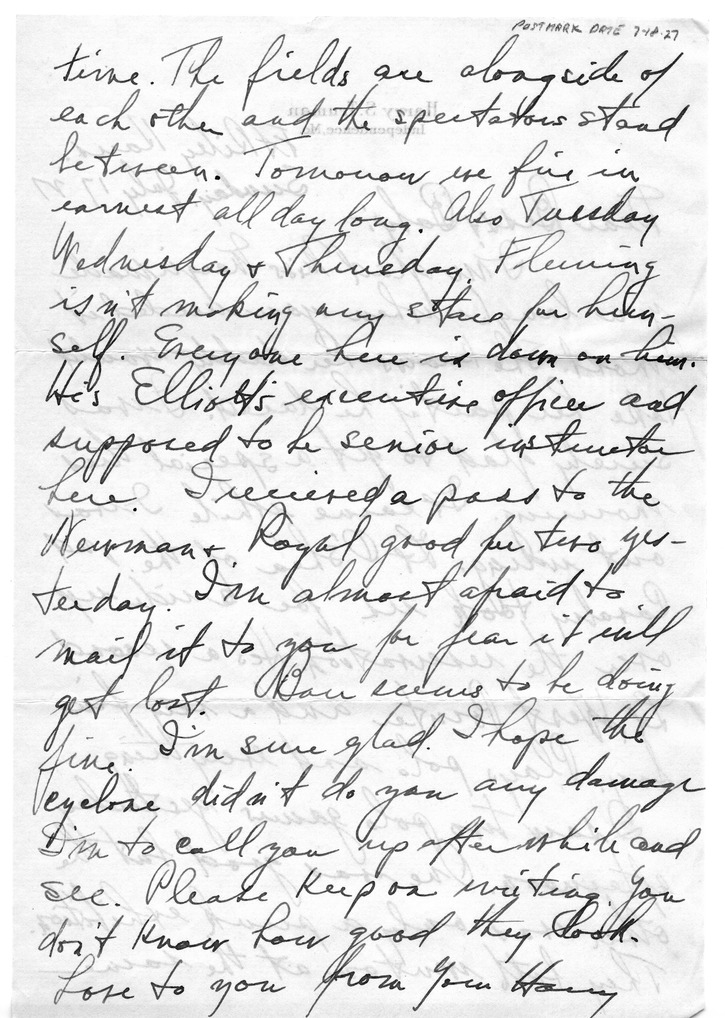 POSTMARK DATE 7-18-27
time. The fields are alongside of
each other and the spectators stand
between. Tomorrow we fire in
earnest all day long. Also Tuesday
Wednesday & Thursday. Fleming
isn't making any stars for him-
self. Everyone here is down on him.
He's Elliott's executive officer and
supposed to be senior instructor
here. I received a pass to the
Newman & Royal good for two yes-
terday. I'm almost afraid to
mail it to you for fear it will
get lost. seems to be doing
fine. I'm sure glad. I hope the
cyclone didn't do you any damage
I'm to call you up after while and
see. Please keep on writing. You
don't know how good they look.
Love to you from Your Harry